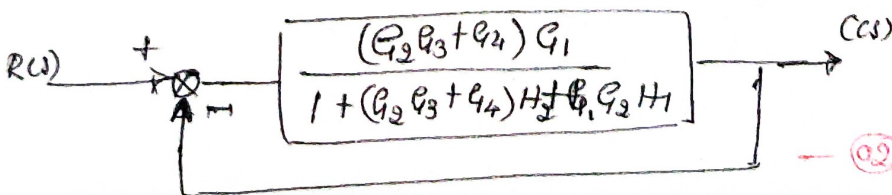 R(s) + − (G2G3+G4) G1 C(s)
1 + (G2G3+G4)H2+G1G2H1
— 02